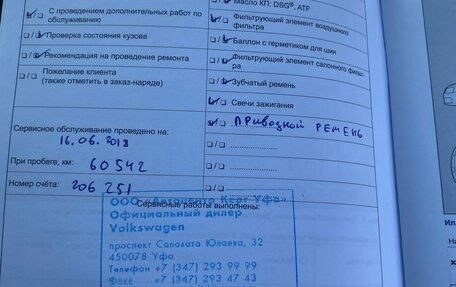 Масло КП: DSG®, ATF
С проведением дополнительных работ по обслуживанию
Фильтрующий элемент воздушного фильтра
Проверка состояния кузова
Баллон с герметиком для шин
Рекомендация на проведение ремонта
Фильтрующий элемент салонного фильтра
Пожелание клиента
(также отметить в заказ-наряде)
Зубчатый ремень
Свечи зажигания
Сервисное обслуживание проведено на:
ПРИВОДНОЙ РЕМЕНЬ
16.06.2018
При пробеге, км: 60542
Номер счёта: 206 251
Сервисные работы выполнены:
ООО «Автоцентр Керг Уфа»
Официальный дилер
Volkswagen
проспект Салавата Юлаева, 32
450078 Уфа
Телефон +7 (347) 293 99 99
Факс +7 (347) 293 47 43